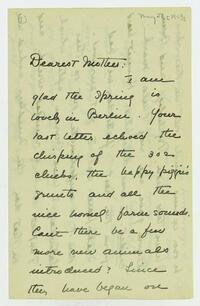 Dearest Mother:
I am
glad the Spring is
lovely in Berlin. Your
last letter echoed the
chirping of the 302
chicks, the happy piggie's
grunts and all the
nice homey farm sounds.
Can't there be a few
more new animals
introduced? Since
they have began on